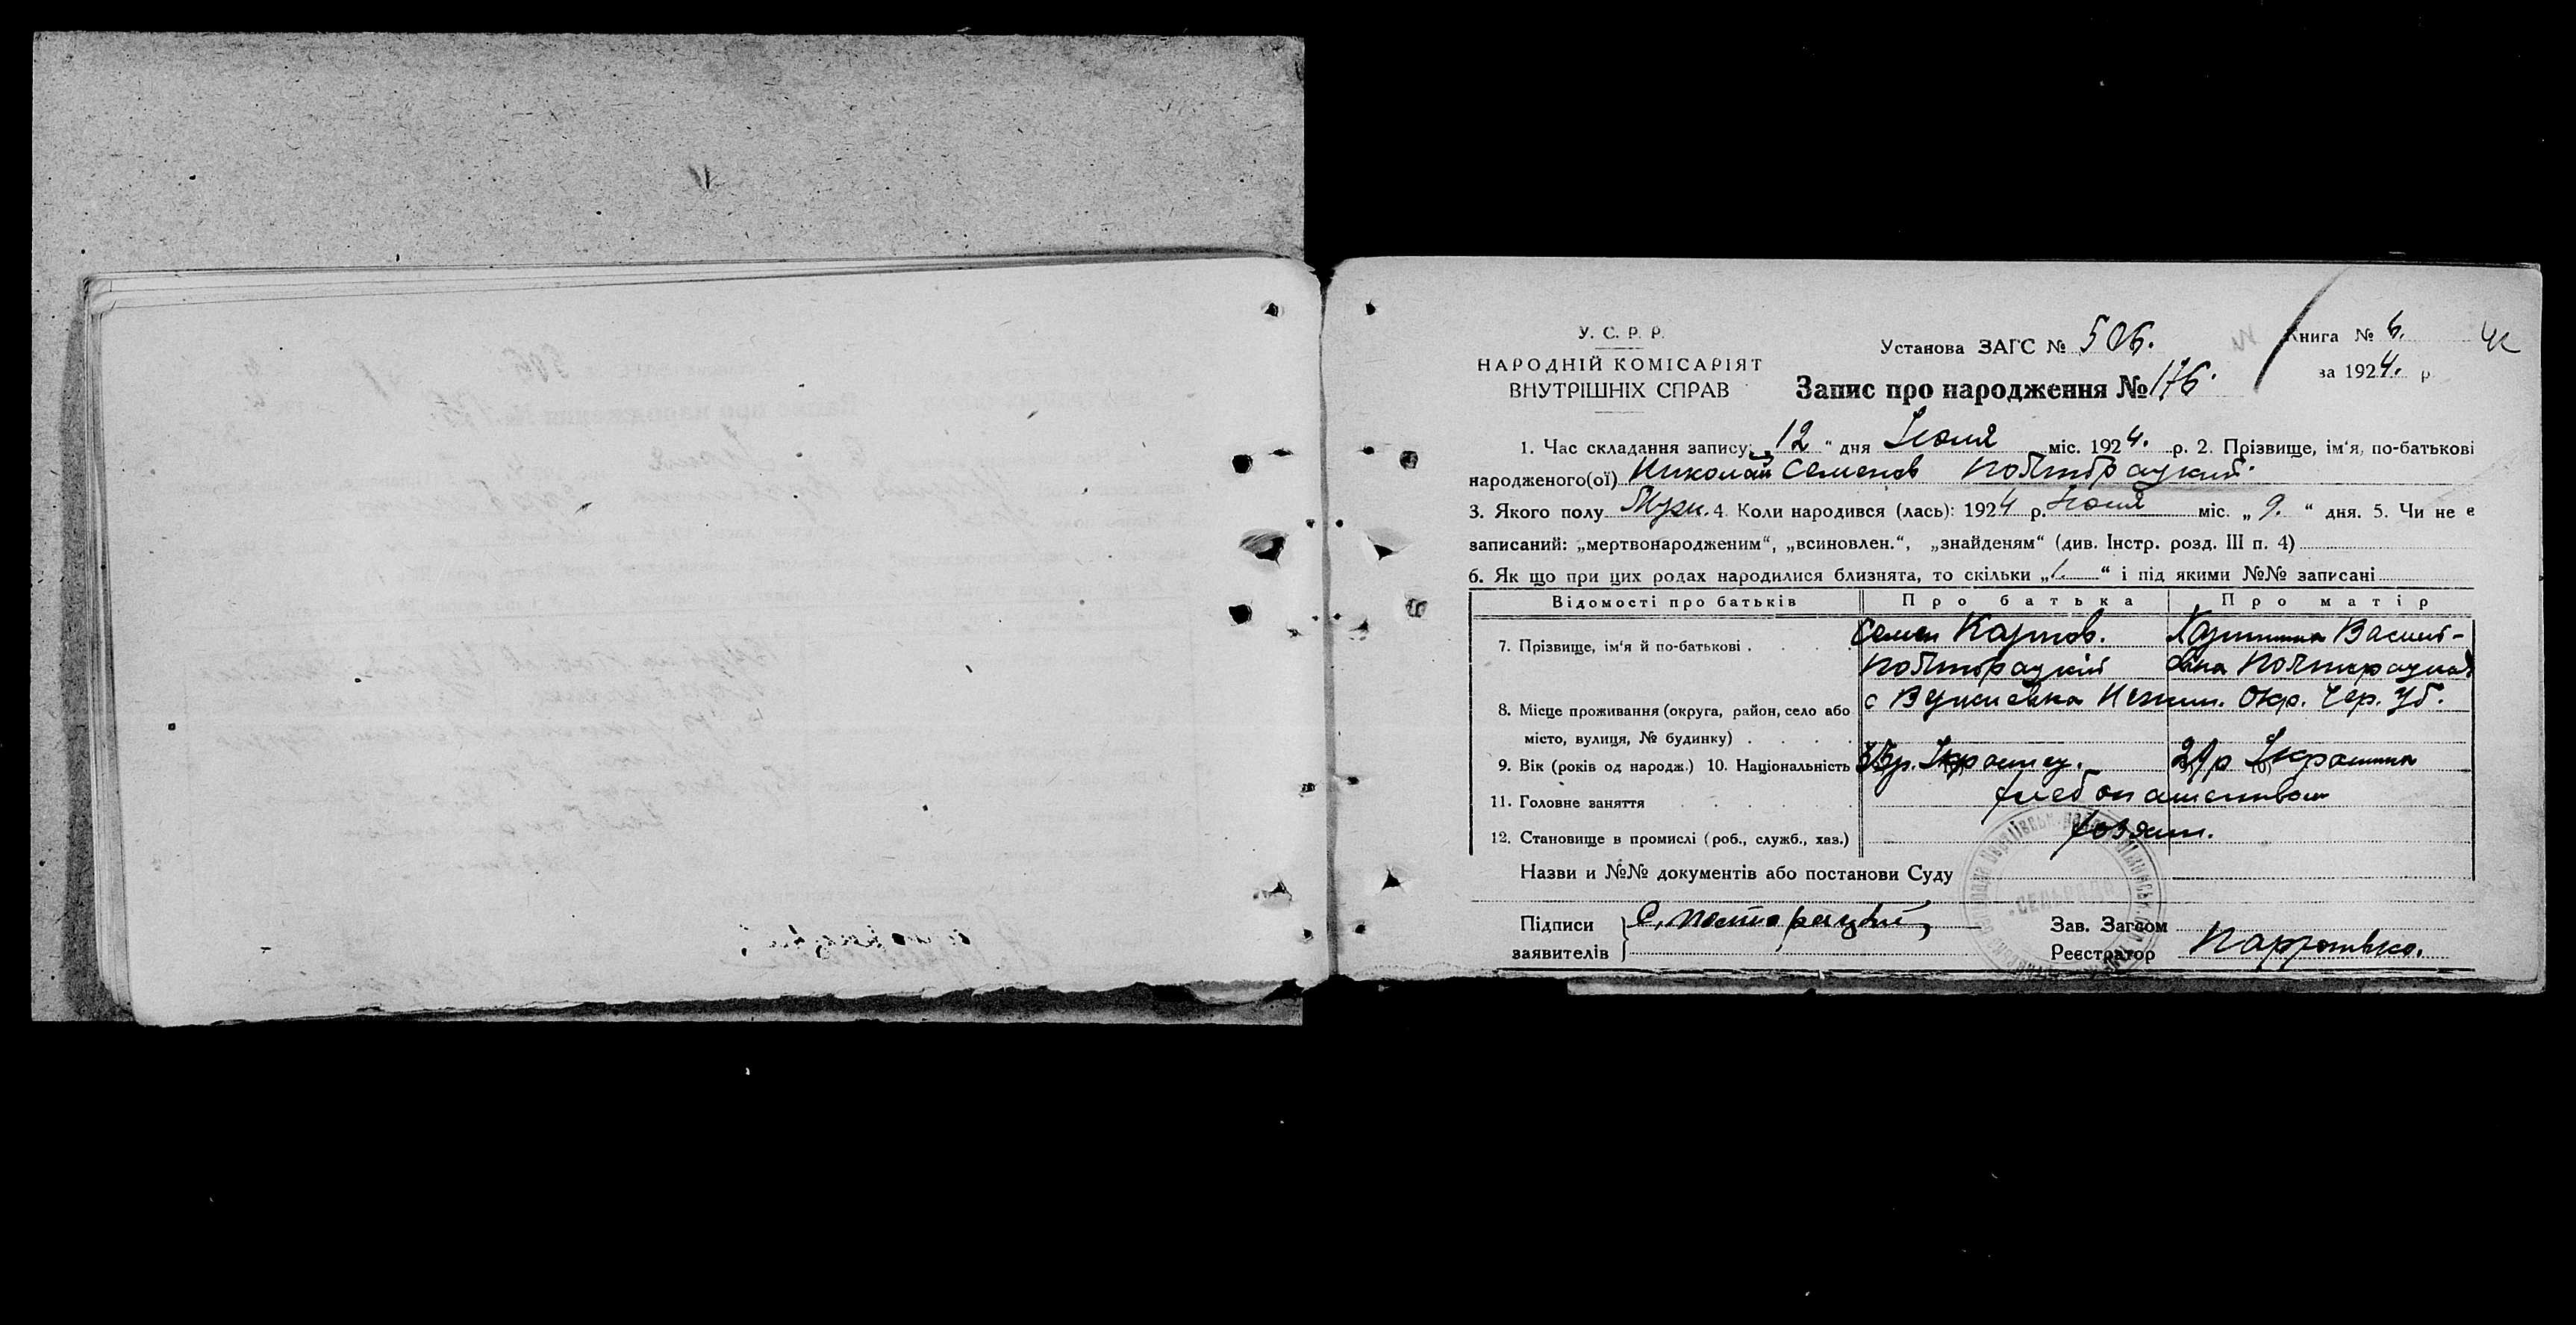 У. С. Р. Р.
НАРОДНІЙ КОМІСАРІЯТ
ВНУТРІШНІХ СПРАВ
Установа ЗАГС № 506.
Книга № 6.
за 1924. р
Запис про народження № 176.
1. Час складання запису: 12 " дня Июня міс. 1924. р. 2. Прізвище, ім'я, по-батькові
народженого(ої) Николай Семенов
3. Якого полу Муж. 4. Коли народився (лась): 1924 р. Июня міс. „ 9. " дня. 5. Чи не є
записаний: „мертвонародженим", „всиновлен.", „знайденям" (див. Інстр. розд. III п. 4)
6. Як що при цих родах народилися близнята, то скільки „ " і під якими №№ записані
Відомості про батьків Про батька Про матір
7. Прізвище, ім'я й по-батькові . Семен Карпов. Васил-
8. Місце проживання (округа, район, село або с Нежин. Окр. Чер. Уб.
місто, вулиця, № будинку)
9. Вік (років од народж.) 10. Національність Украинец. Украинка
11. Головне заняття хлебопашеством
12. Становище в промислі (роб., служб., хаз.) хозяин.
Назви и №№ документів або постанови Суду
Підписи
заявителів
Зав. Загсом
Реєстратор